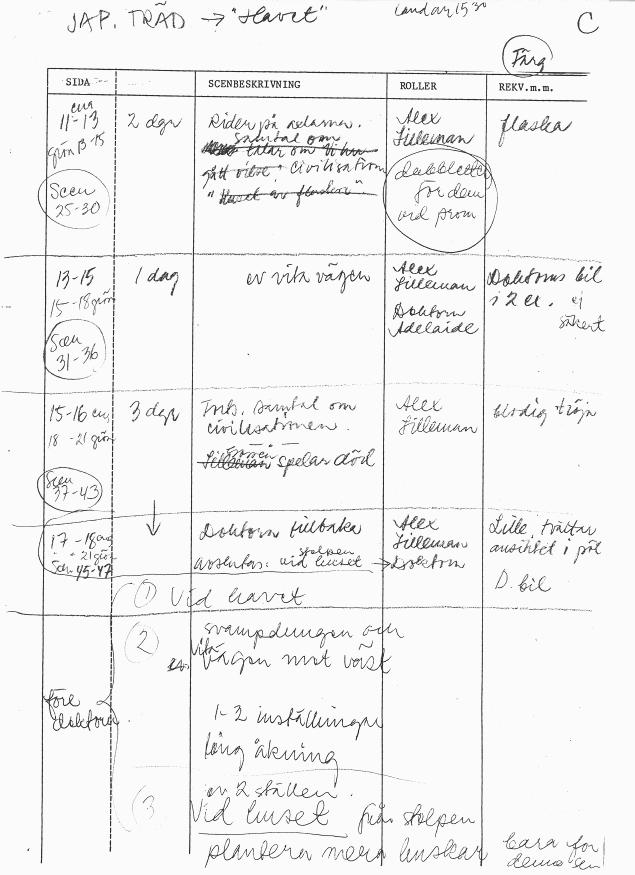 JAP. TRÄD → "Havet"
15 30
C
Färg
SIDA
SCENBESKRIVNING
ROLLER
REKV.m.m.
eng
11-13
grön 13-15
Scen
25-30
2 dgr
Rider på axlarna.
samtal om
talar om
gått civilisation
"Huset av flaskor"
Alex
Lilleman
dubbletter
för dem
vid prom
flaska
13-15
15-18 grön
Scen
31-36
1 dag
ev vita vägen
Alex
Lilleman
Doktorn
Adelaide
Doktorns bil
i 2 ex. ej
säkert
15-16 eng
18-21 grön
Scen
37-43
3 dgr
samtal om
civilisationen.
Lilleman spelar död
Alex
Lilleman
blodig tröja
17-18 eng
21 grön
Scen 45-47
Doktorn tillbaka
stolpen
vid huset →
Alex
Lilleman
Doktorn
Lille. tvättar
ansiktet i pöl
D. bil
① Vid havet
②
svampdungen och
vita
vägen mot väst
före
doktorn
1-2 inställningar
lång åkning
ev 2 ställen.
③
Vid huset från stolpen
plantera mera buskar bara för